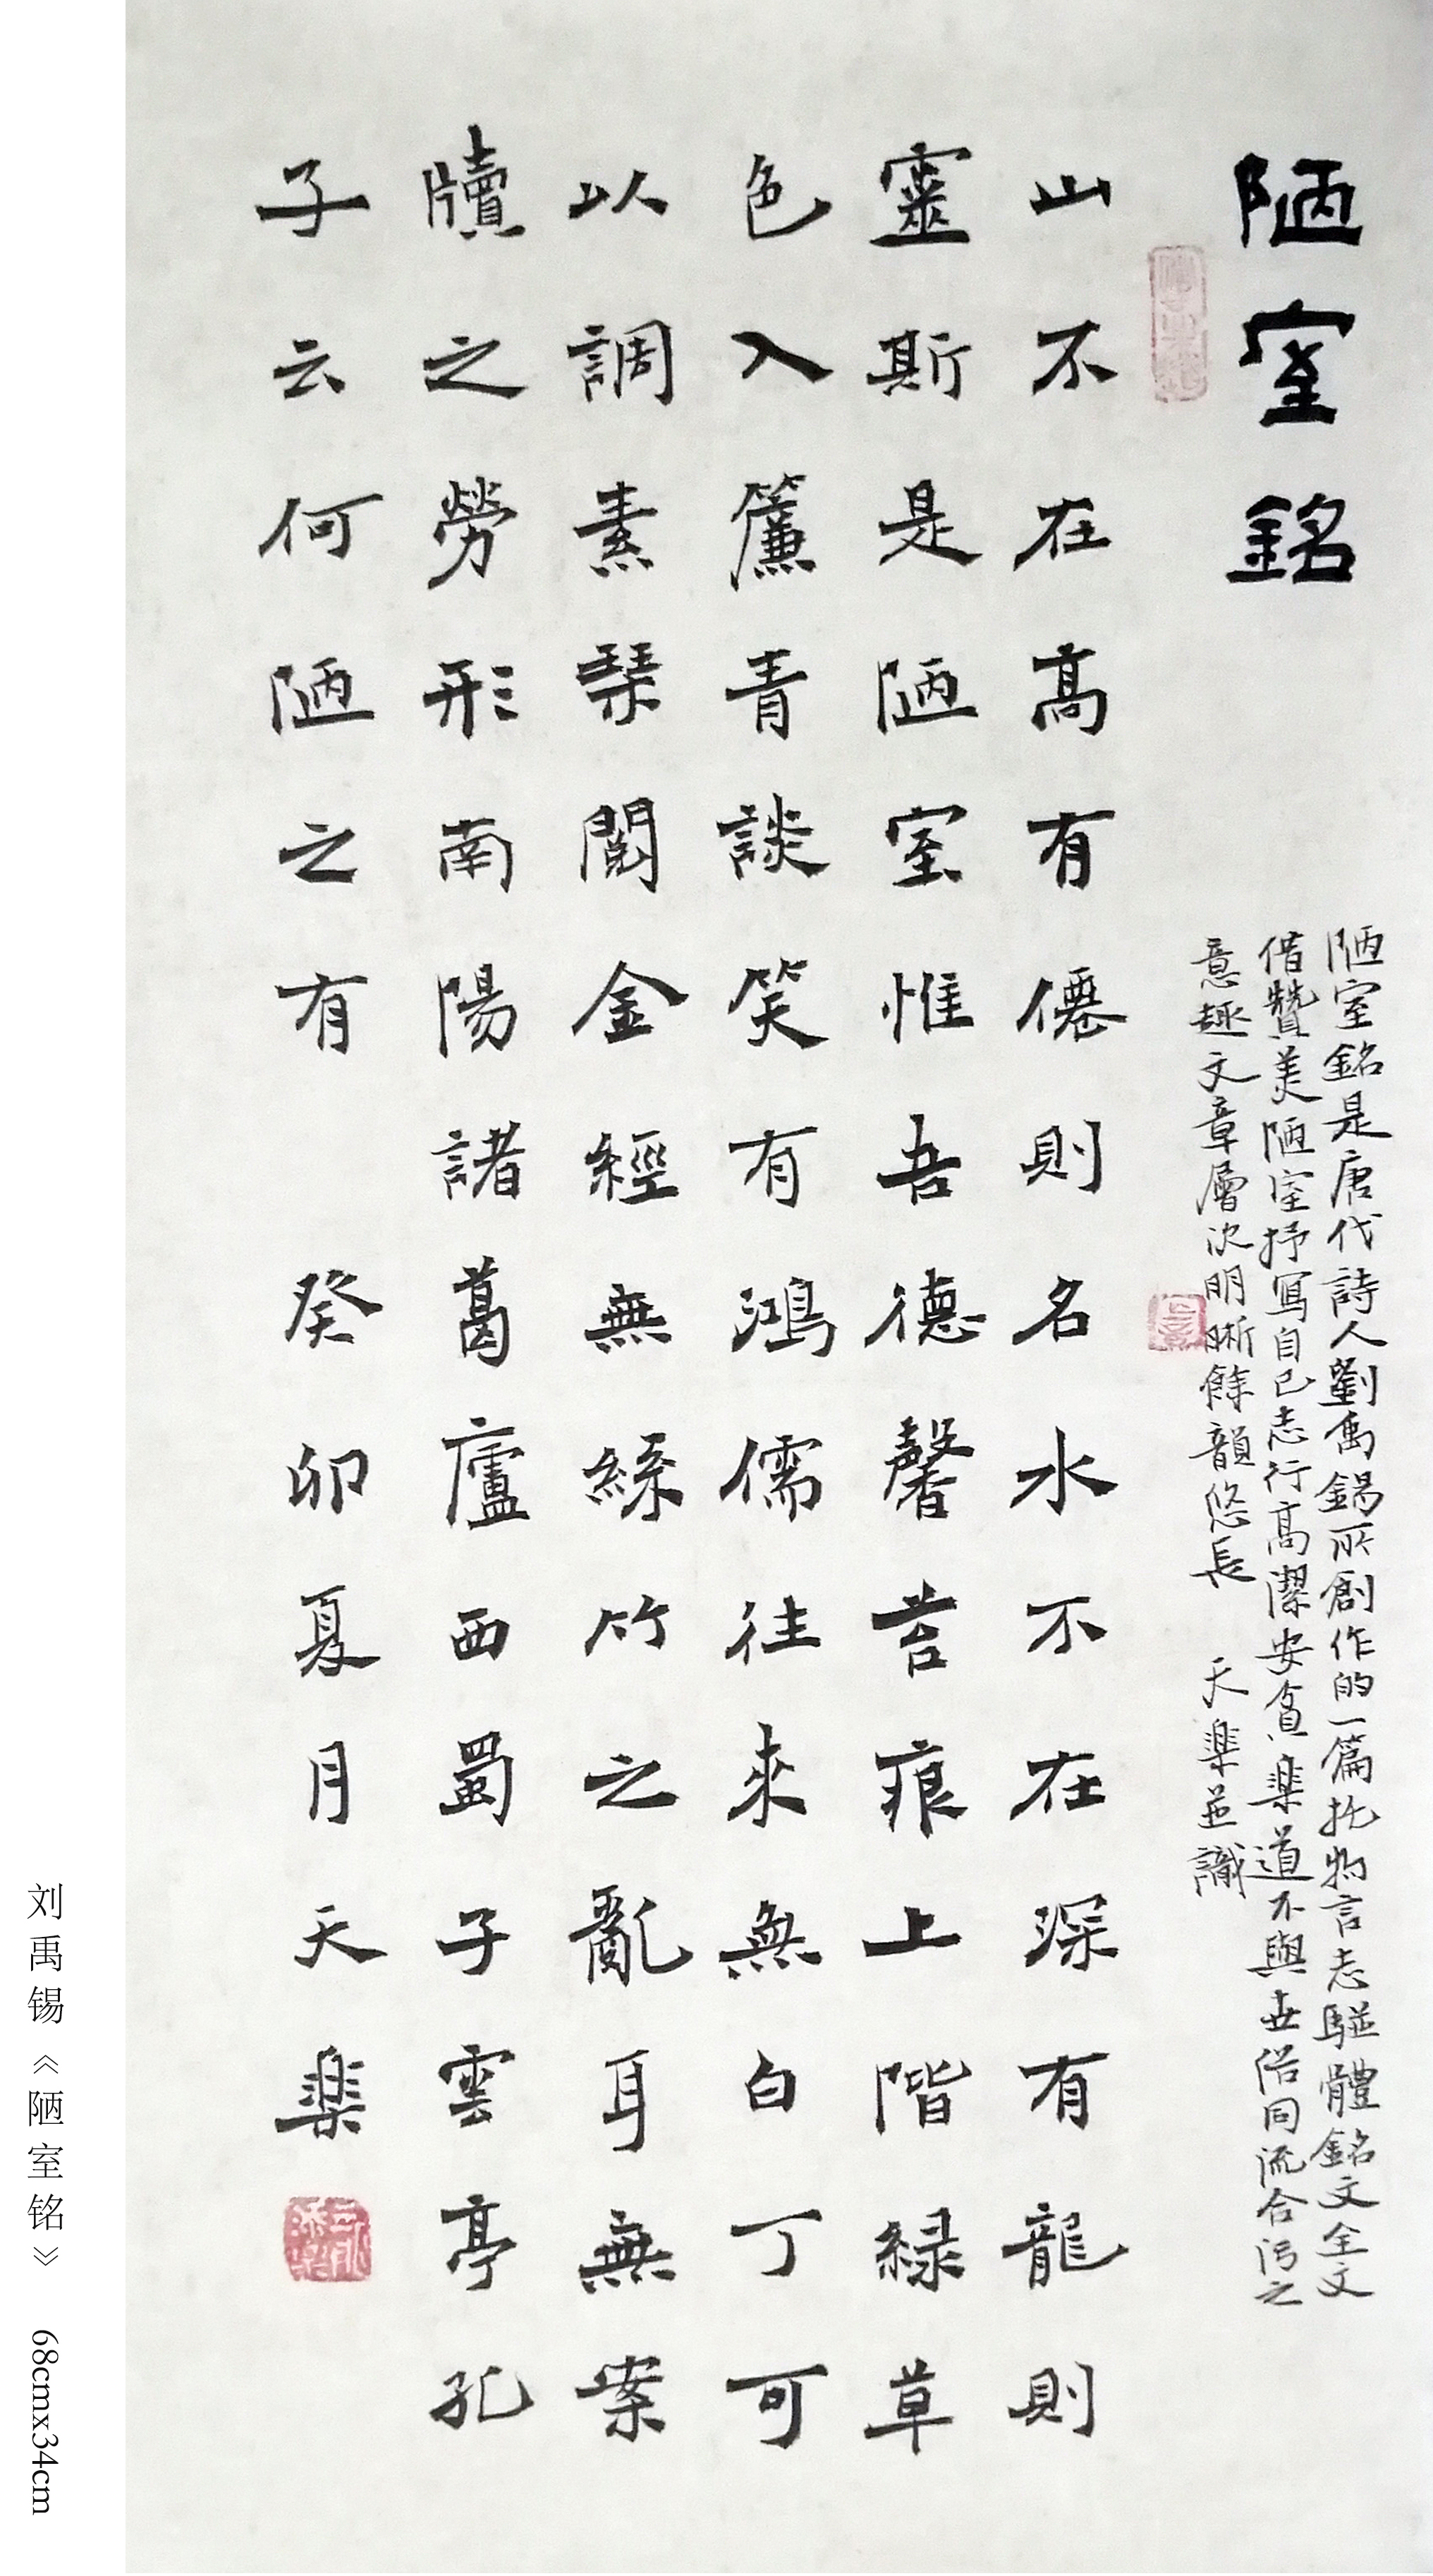 陋室銘
陋室銘是唐代詩人劉禹錫所創作的一篇托物言志駢體銘文全文
借贊美陋室抒寫自己志行高潔安貧樂道不與世俗同流合污之
意趣文章層次明晰餘韻悠長 天樂並識
山不在高有僊則名水不在深有龍則
靈斯是陋室惟吾德馨苔痕上階緑草
色入簾青談笑有鴻儒往來無白丁可
以調素琴閱金經無絲竹之亂耳無案
牘之勞形南陽諸葛廬西蜀子雲亭孔
子云何陋之有 癸卯夏月天樂
刘禹锡《陋室铭》 68cmx34cm